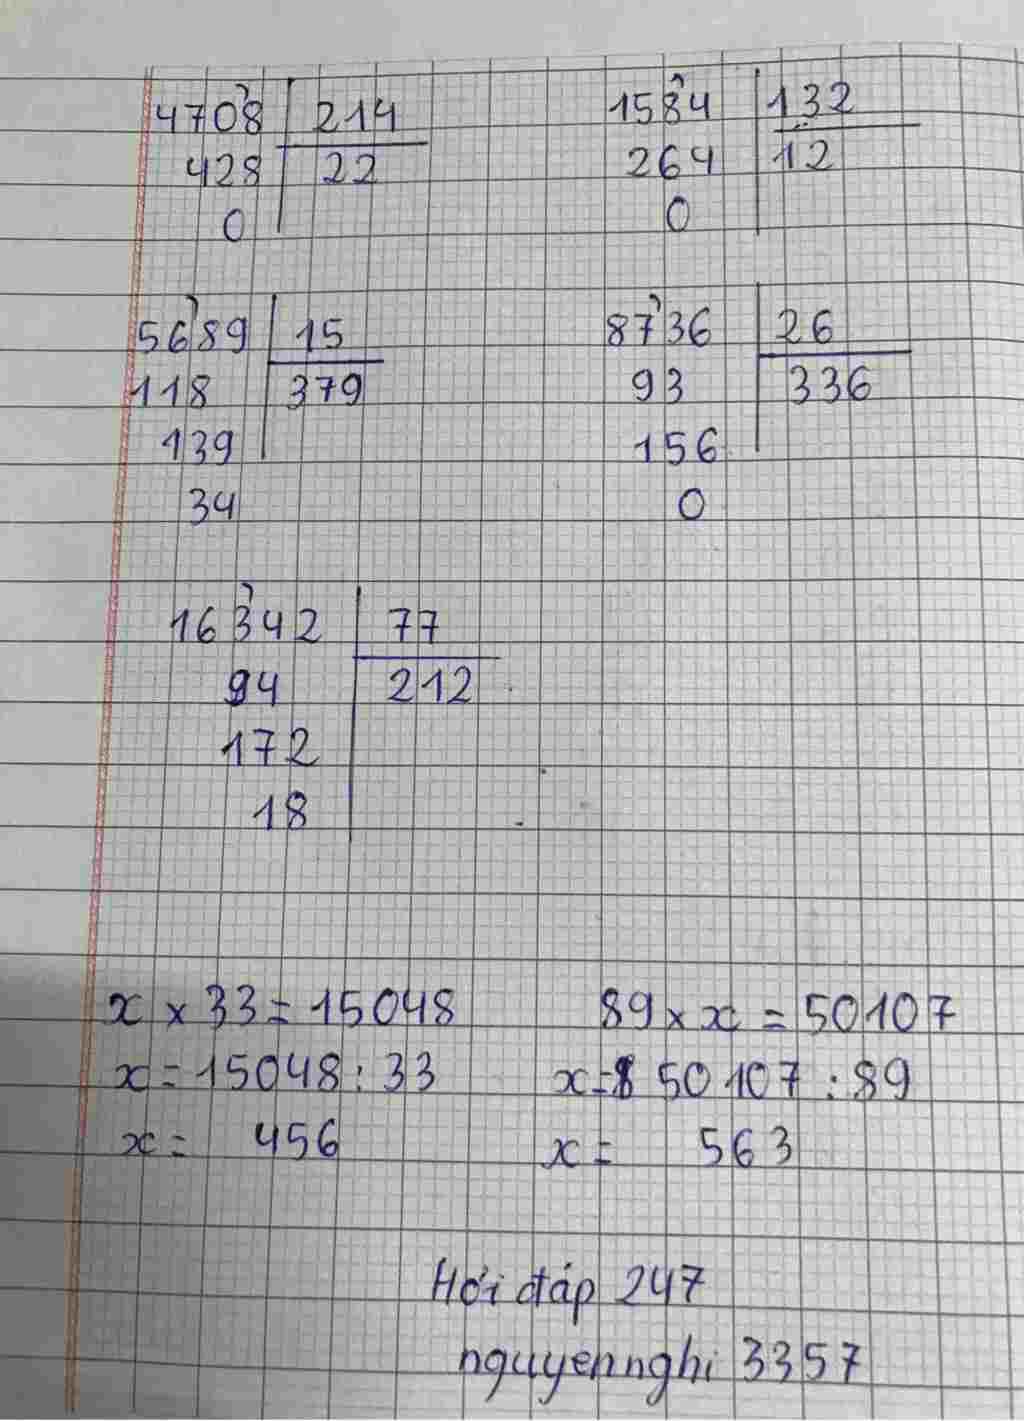 4708 214 1584 132
428 22 264 12
0 0
5689 15 8736 26
118 379 93 336
139 156
34 0
16342 77
94 212
172
18
x × 33 = 15048 89 × x = 50107
x = 15048 : 33 x = 50107 : 89
x = 456 x = 563
Hỏi đáp 247
nguyennghi 3357